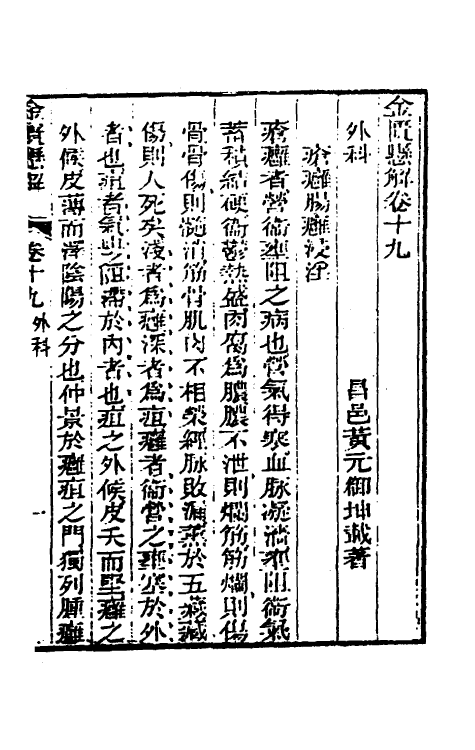 金匱懸解卷十九
外科
昌邑黃元御坤載著
瘡癰腸癰浸淫
瘡癰者營衞壅阻之病也營氣得寒血脉凝濇壅阻衞氣
蓄積結硬衞鬱熱盛肉腐爲膿膿不泄則爛筋筋爛則傷
骨骨傷則髓消筋骨肌肉不相榮經脉敗漏薰於五藏藏
傷則人死矣淺者爲癰深者爲疽癰者衞營之壅塞於外
者也疽者氣血之阻滯於內者也疽之外候皮夭而堅癰之
外候皮薄而澤陰陽之分也仲景於癰疽之門獨列腫癰
金匱懸解 卷十九 外科 一